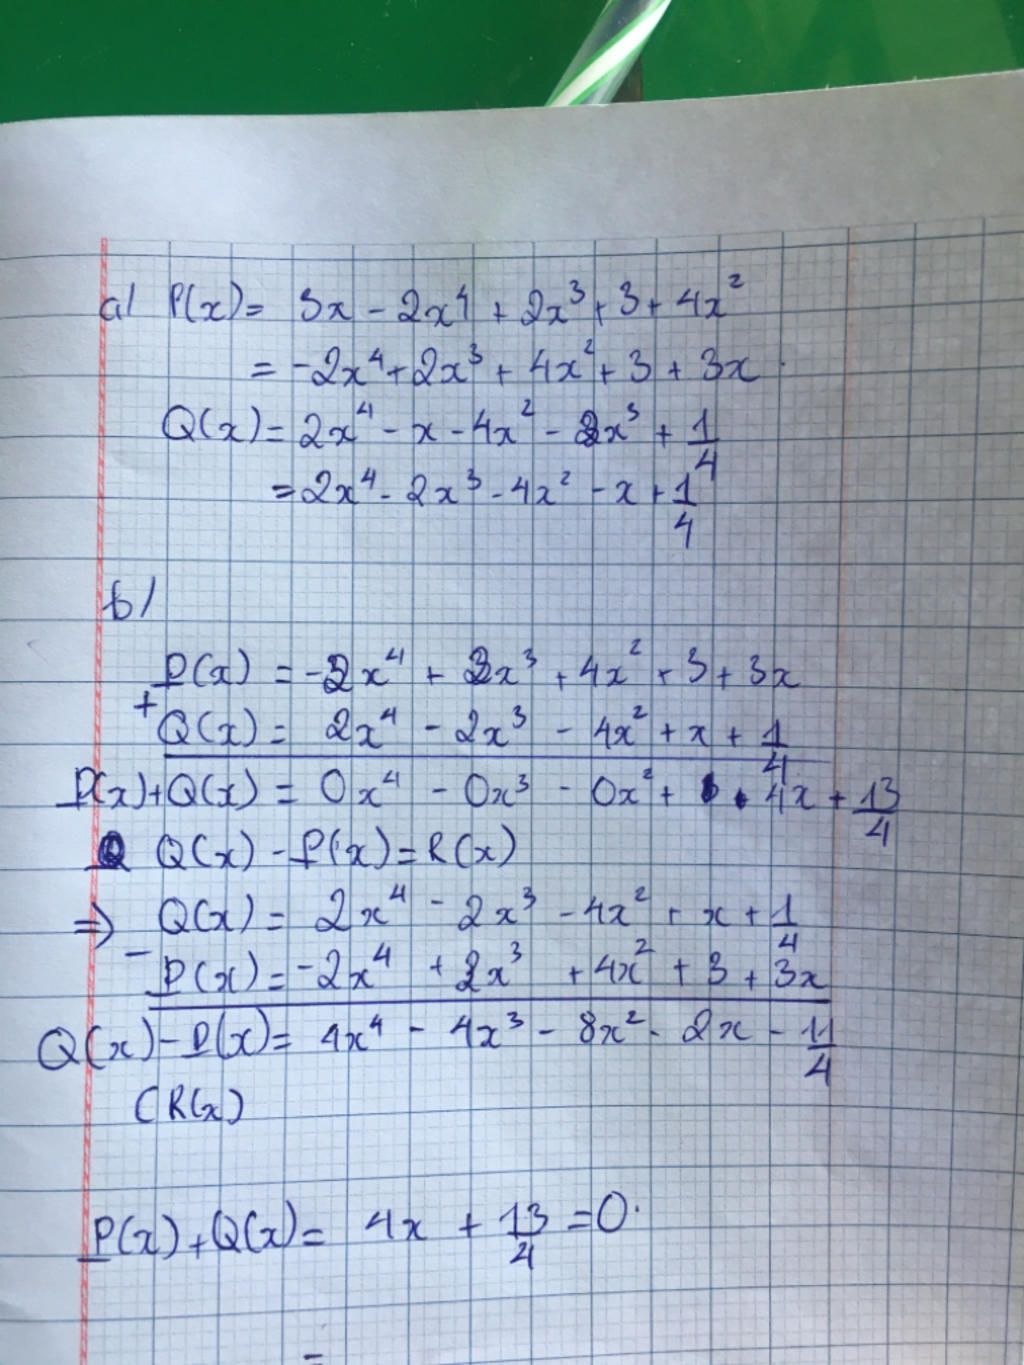 a/ P(x) = 3x - 2x⁴ + 2x³ + 3 + 4x²
= -2x⁴ + 2x³ + 4x² + 3 + 3x.
Q(x) = 2x⁴ - x - 4x² - 2x³ + 1/4
= 2x⁴ - 2x³ - 4x² - x + 1/4
b/
P(x) = -2x⁴ + 2x³ + 4x² + 3 + 3x
+
Q(x) = 2x⁴ - 2x³ - 4x² + x + 1/4
P(x) + Q(x) = 0x⁴ - 0x³ - 0x² + 4x + 13/4
Q(x) - P(x) = R(x)
⇒ Q(x) = 2x⁴ - 2x³ - 4x² + x + 1/4
-
P(x) = -2x⁴ + 2x³ + 4x² + 3 + 3x
Q(x) - P(x) = 4x⁴ - 4x³ - 8x² - 2x - 11/4
(R(x)
P(x) + Q(x) = 4x + 13/4 = 0.